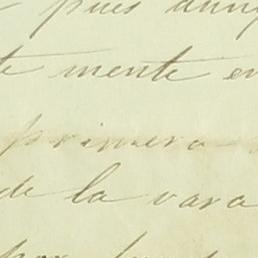 pues aunq
te mente en
primera
de la vara
por